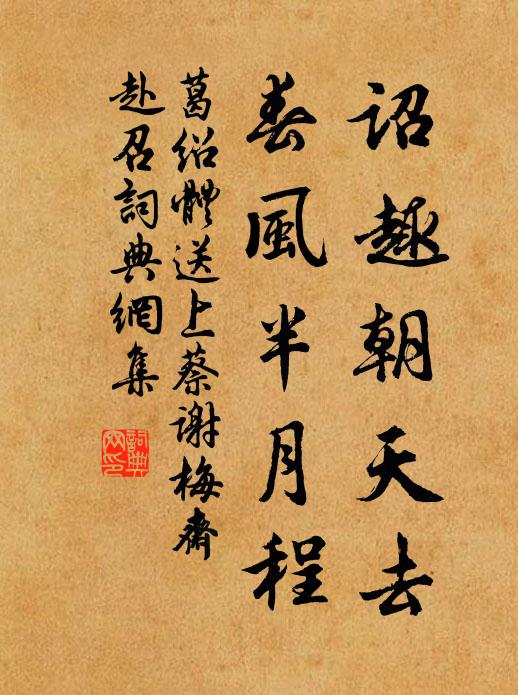 詔趣朝天去
春風半月程
葛紹體送上蔡謝梅齋
赴召詞典網集
詞典
网印